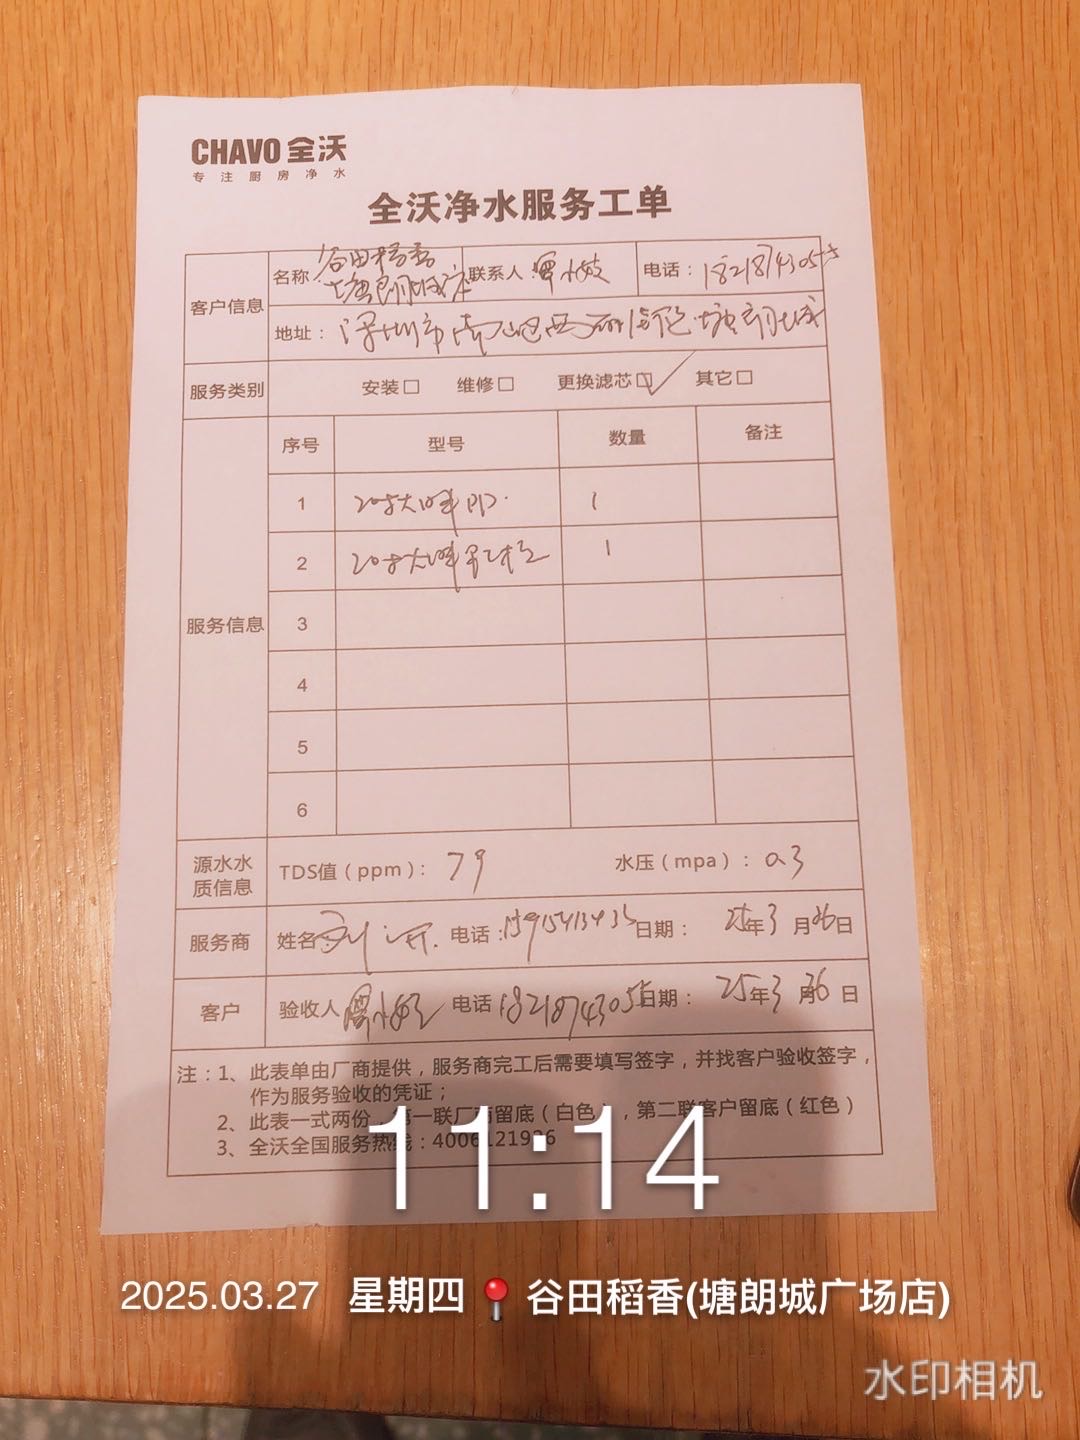 CHAVO 全沃
专注厨房净水
全沃净水服务工单
客户信息 名称: 谷田稻香塘朗城店 联系人: 电话: 18218743055
地址: 深圳市南山区西丽 塘朗城
服务类别 安装□ 维修□ 更换滤芯☑ 其它□
服务信息 序号 型号 数量 备注
1 20寸大胖PP 1
2 20寸大胖 1
3
4
5
6
源水水质信息 TDS值（ppm）: 79 水压（mpa）: 0.3
服务商 姓名 电话: 日期: 25年3月26日
客户 验收人 电话 18218743055 日期: 25年3月26日
注：1、此表单由厂商提供，服务商完工后需要填写签字，并找客户验收签字，
作为服务验收的凭证；
2、此表一式两份，第一联厂商留底（白色），第二联客户留底（红色）
3、全沃全国服务热线：4006121926
11:14
2025.03.27 星期四 谷田稻香(塘朗城广场店)
水印相机